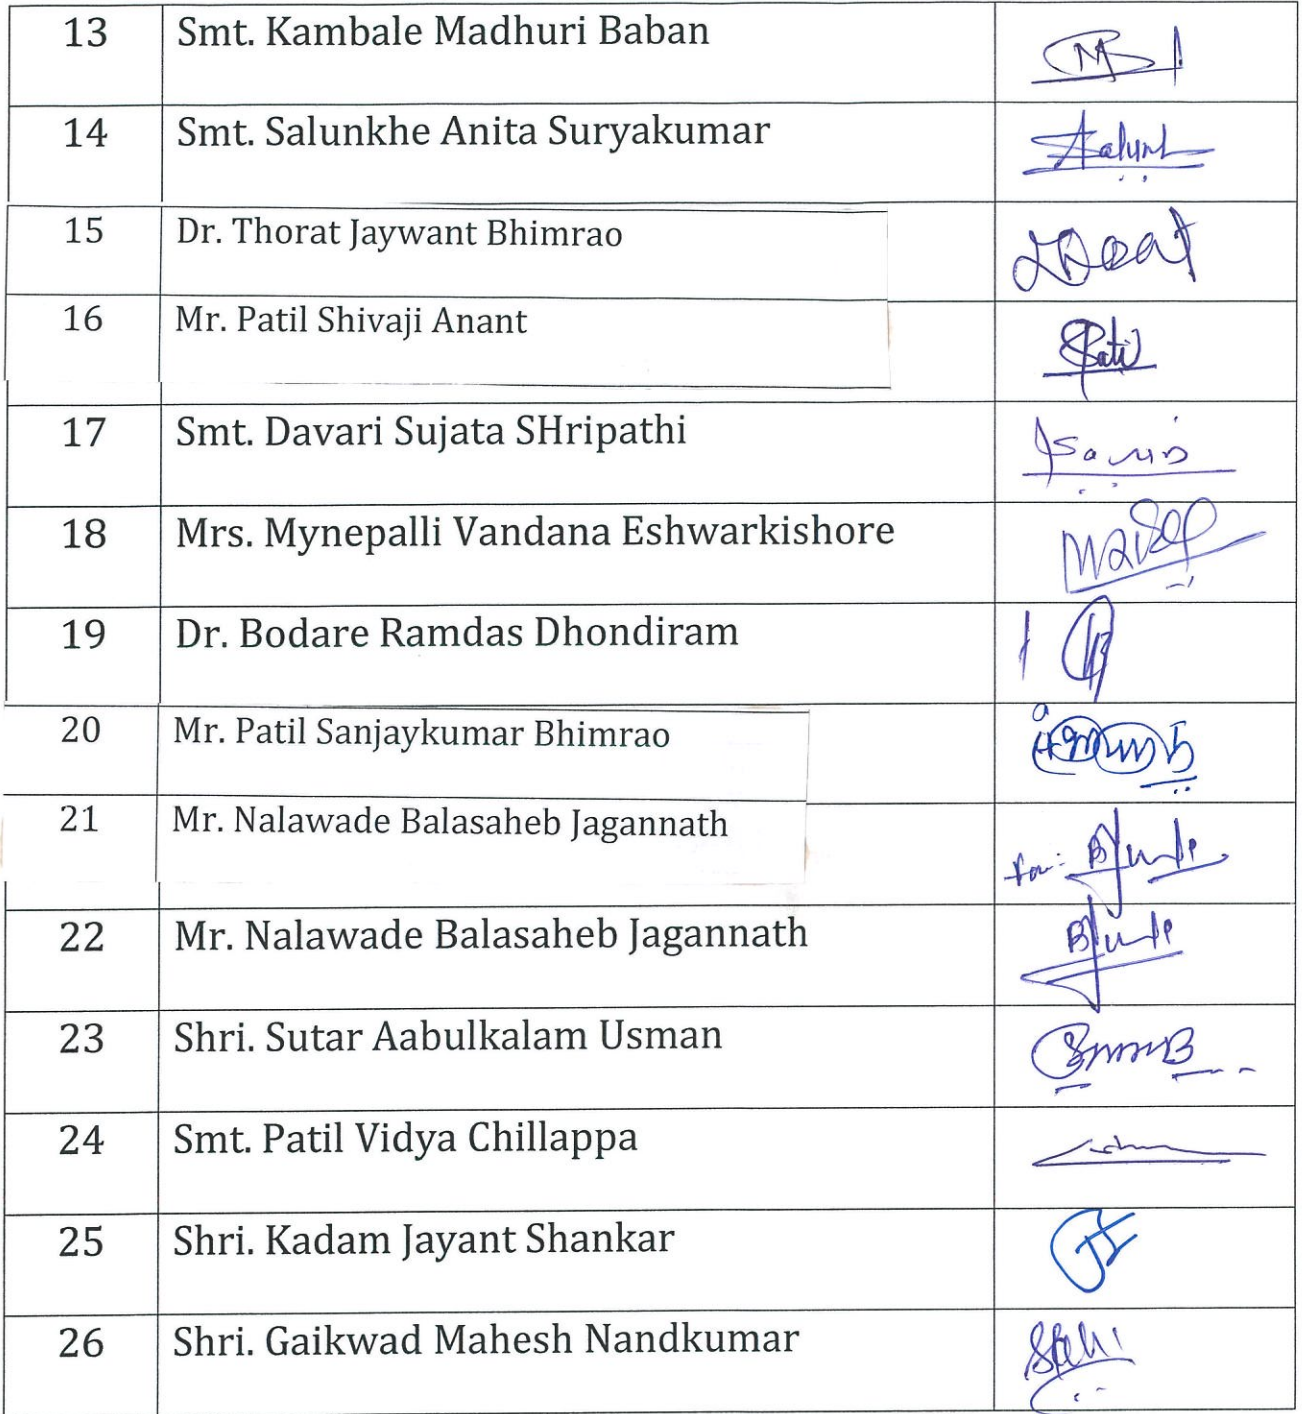 13 Smt. Kambale Madhuri Baban
14 Smt. Salunkhe Anita Suryakumar
15 Dr. Thorat Jaywant Bhimrao
16 Mr. Patil Shivaji Anant
17 Smt. Davari Sujata SHripathi
18 Mrs. Mynepalli Vandana Eshwarkishore
19 Dr. Bodare Ramdas Dhondiram
20 Mr. Patil Sanjaykumar Bhimrao
21 Mr. Nalawade Balasaheb Jagannath
22 Mr. Nalawade Balasaheb Jagannath
23 Shri. Sutar Aabulkalam Usman
24 Smt. Patil Vidya Chillappa
25 Shri. Kadam Jayant Shankar
26 Shri. Gaikwad Mahesh Nandkumar